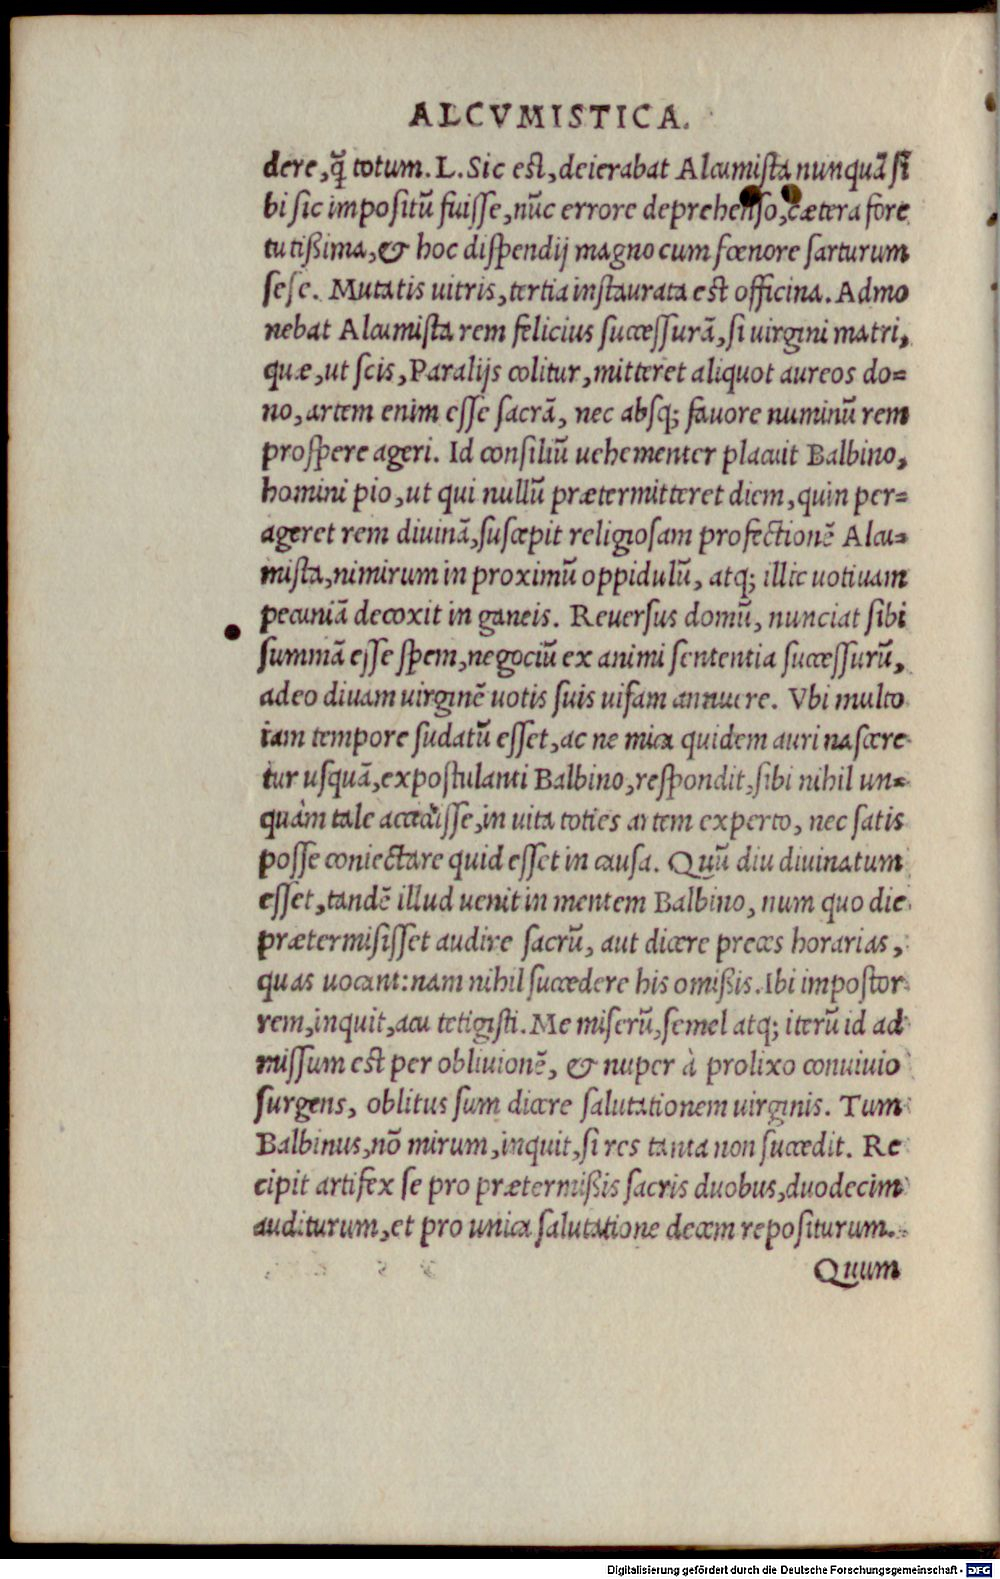 ALCVMISTICA.
dere, q̃ totum. L. Sic est, deierabat Alcumista nunquā si
bi sic impositū fuisse, nūc errore deprehenso, cætera fore
tutißima, & hoc dispendij magno cum fœnore sarturum
sese. Mutatis uitris, tertia instaurata est officina. Admo
nebat Alcumista rem felicius successurā, si uirgini matri,
quæ, ut scis, Paralijs colitur, mitteret aliquot aureos do=
no, artem enim esse sacrā, nec absq; fauore numinū rem
prospere ageri. Id consiliū uehementer placuit Balbino,
homini pio, ut qui nullū prætermitteret diem, quin per=
ageret rem diuinā, suscepit religiosam profectionē Alcu=
mista, nimirum in proximū oppidulū, atq; illic uotiuam
pecuniā decoxit in ganeis. Reuersus domū, nunciat sibi
summā esse spem, negociū ex animi sententia successurū,
adeo diuam uirginē uotis suis uisam annuere. Vbi multo
iam tempore sudatū esset, ac ne mica quidem auri nascere
tur usquā, expostulanti Balbino, respondit, sibi nihil un=
quàm tale accedisse, in uita toties artem experto, nec satis
posse coniectare quid esset in causa. Quū diu diuinatum
esset, tandē illud uenit in mentem Balbino, num quo die
prætermisisset audire sacrū, aut dicere preces horarias,
quas uocant: nam nihil succedere his omißis. Ibi impostor
rem, inquit, acu tetigisti. Me miserū, semel atq; iterū id ad
missum est per obliuionē, & nuper à prolixo conuiuio
surgens, oblitus sum dicere salutationem uirginis. Tum
Balbinus, nō mirum, inquit, si res tanta non succedit. Re
cipit artifex se pro prætermißis sacris duobus, duodecim
auditurum, et pro unica salutatione decem repositurum.
Quum
Digitalisierung gefördert durch die Deutsche Forschungsgemeinschaft - DFG